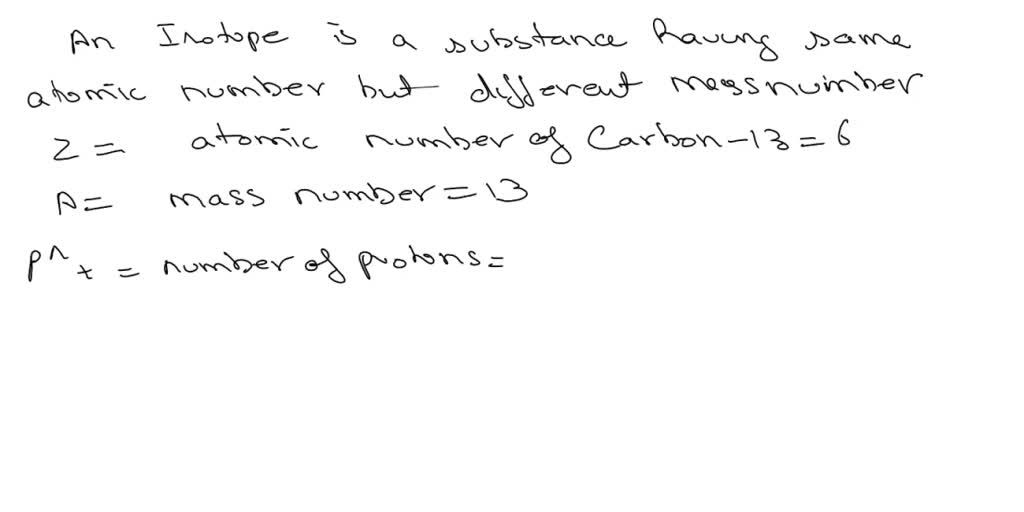 An Isotope is a substance having same
atomic number but different mass number
Z = atomic number of Carbon-13 = 6
A = mass number = 13
P^+ = number of protons =